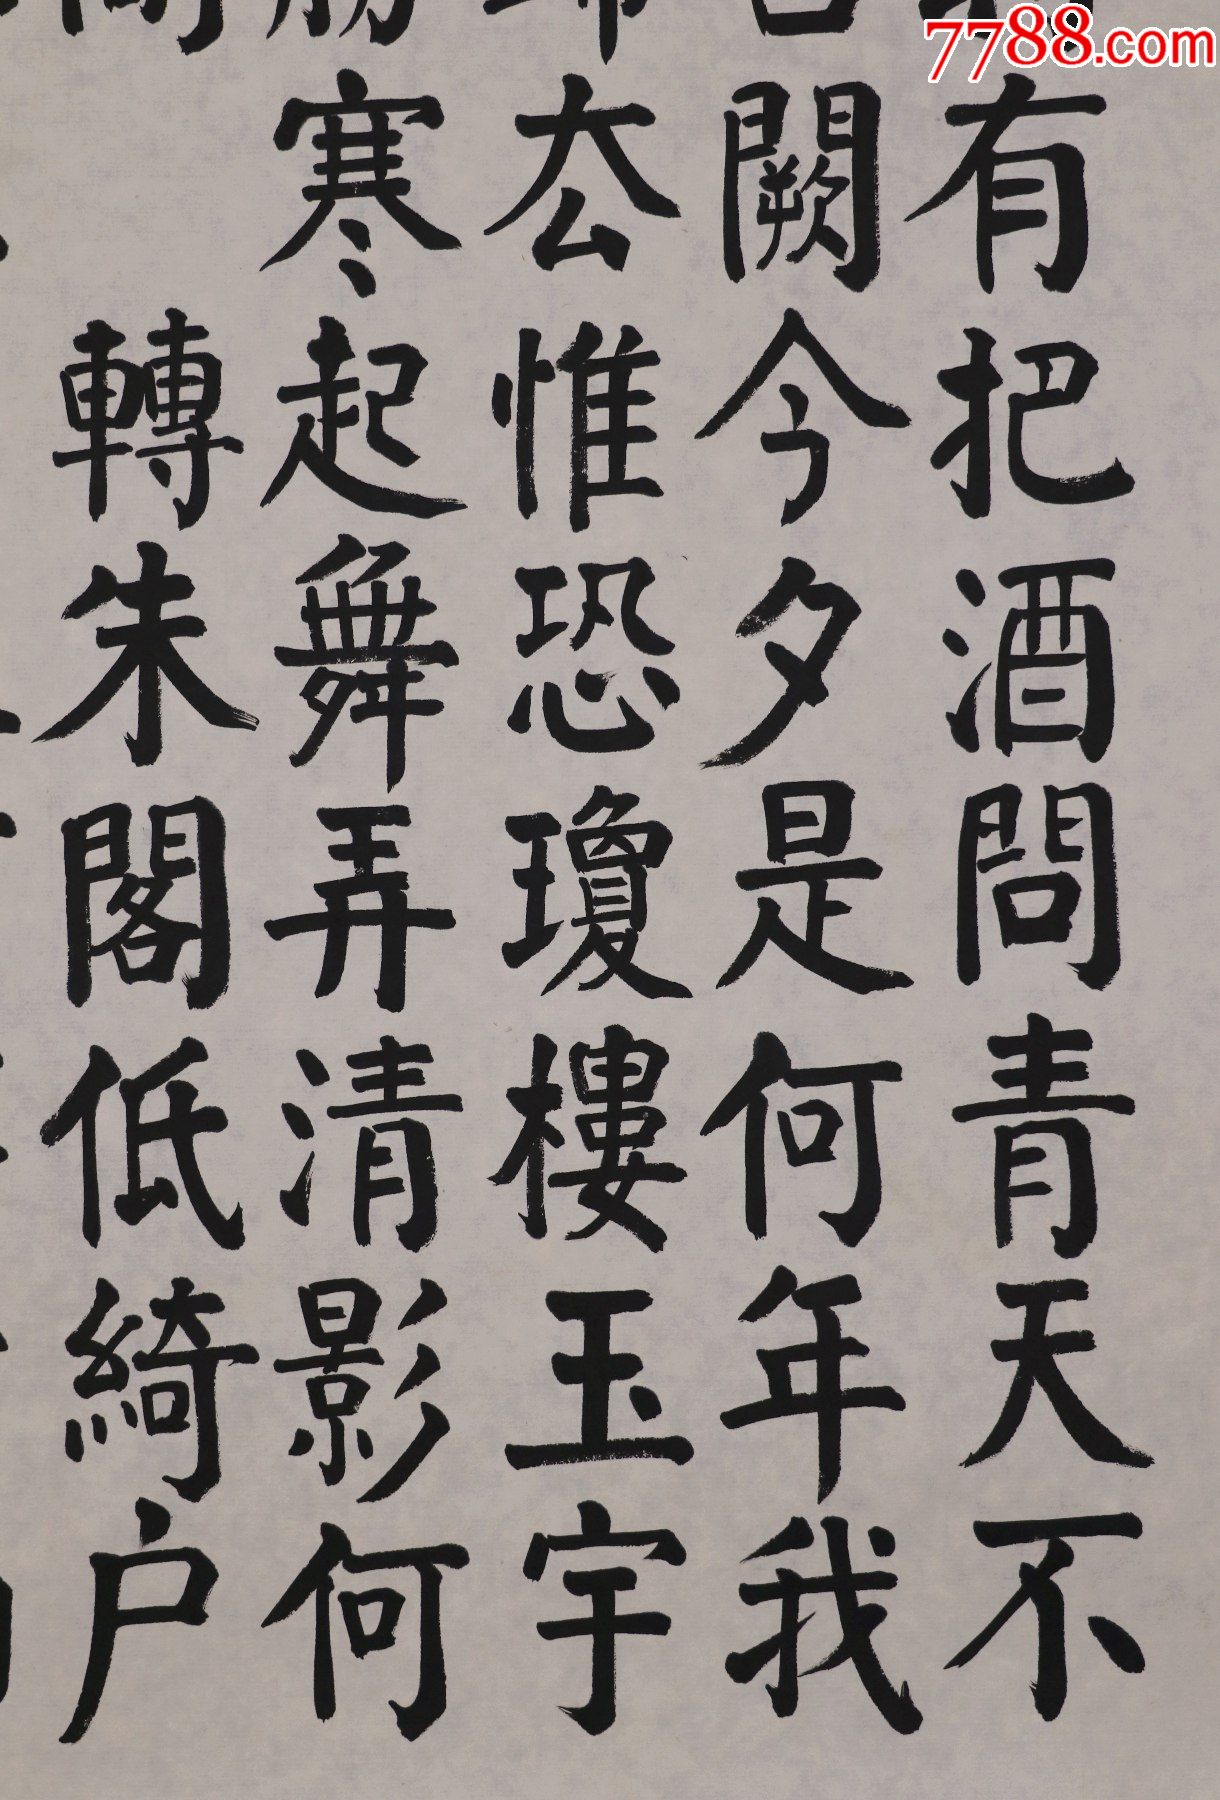 7788.com
有把酒問青天不
闕今夕是何年我
厺惟恐瓊樓玉宇
寒起舞弄清影何
轉朱閣低綺户